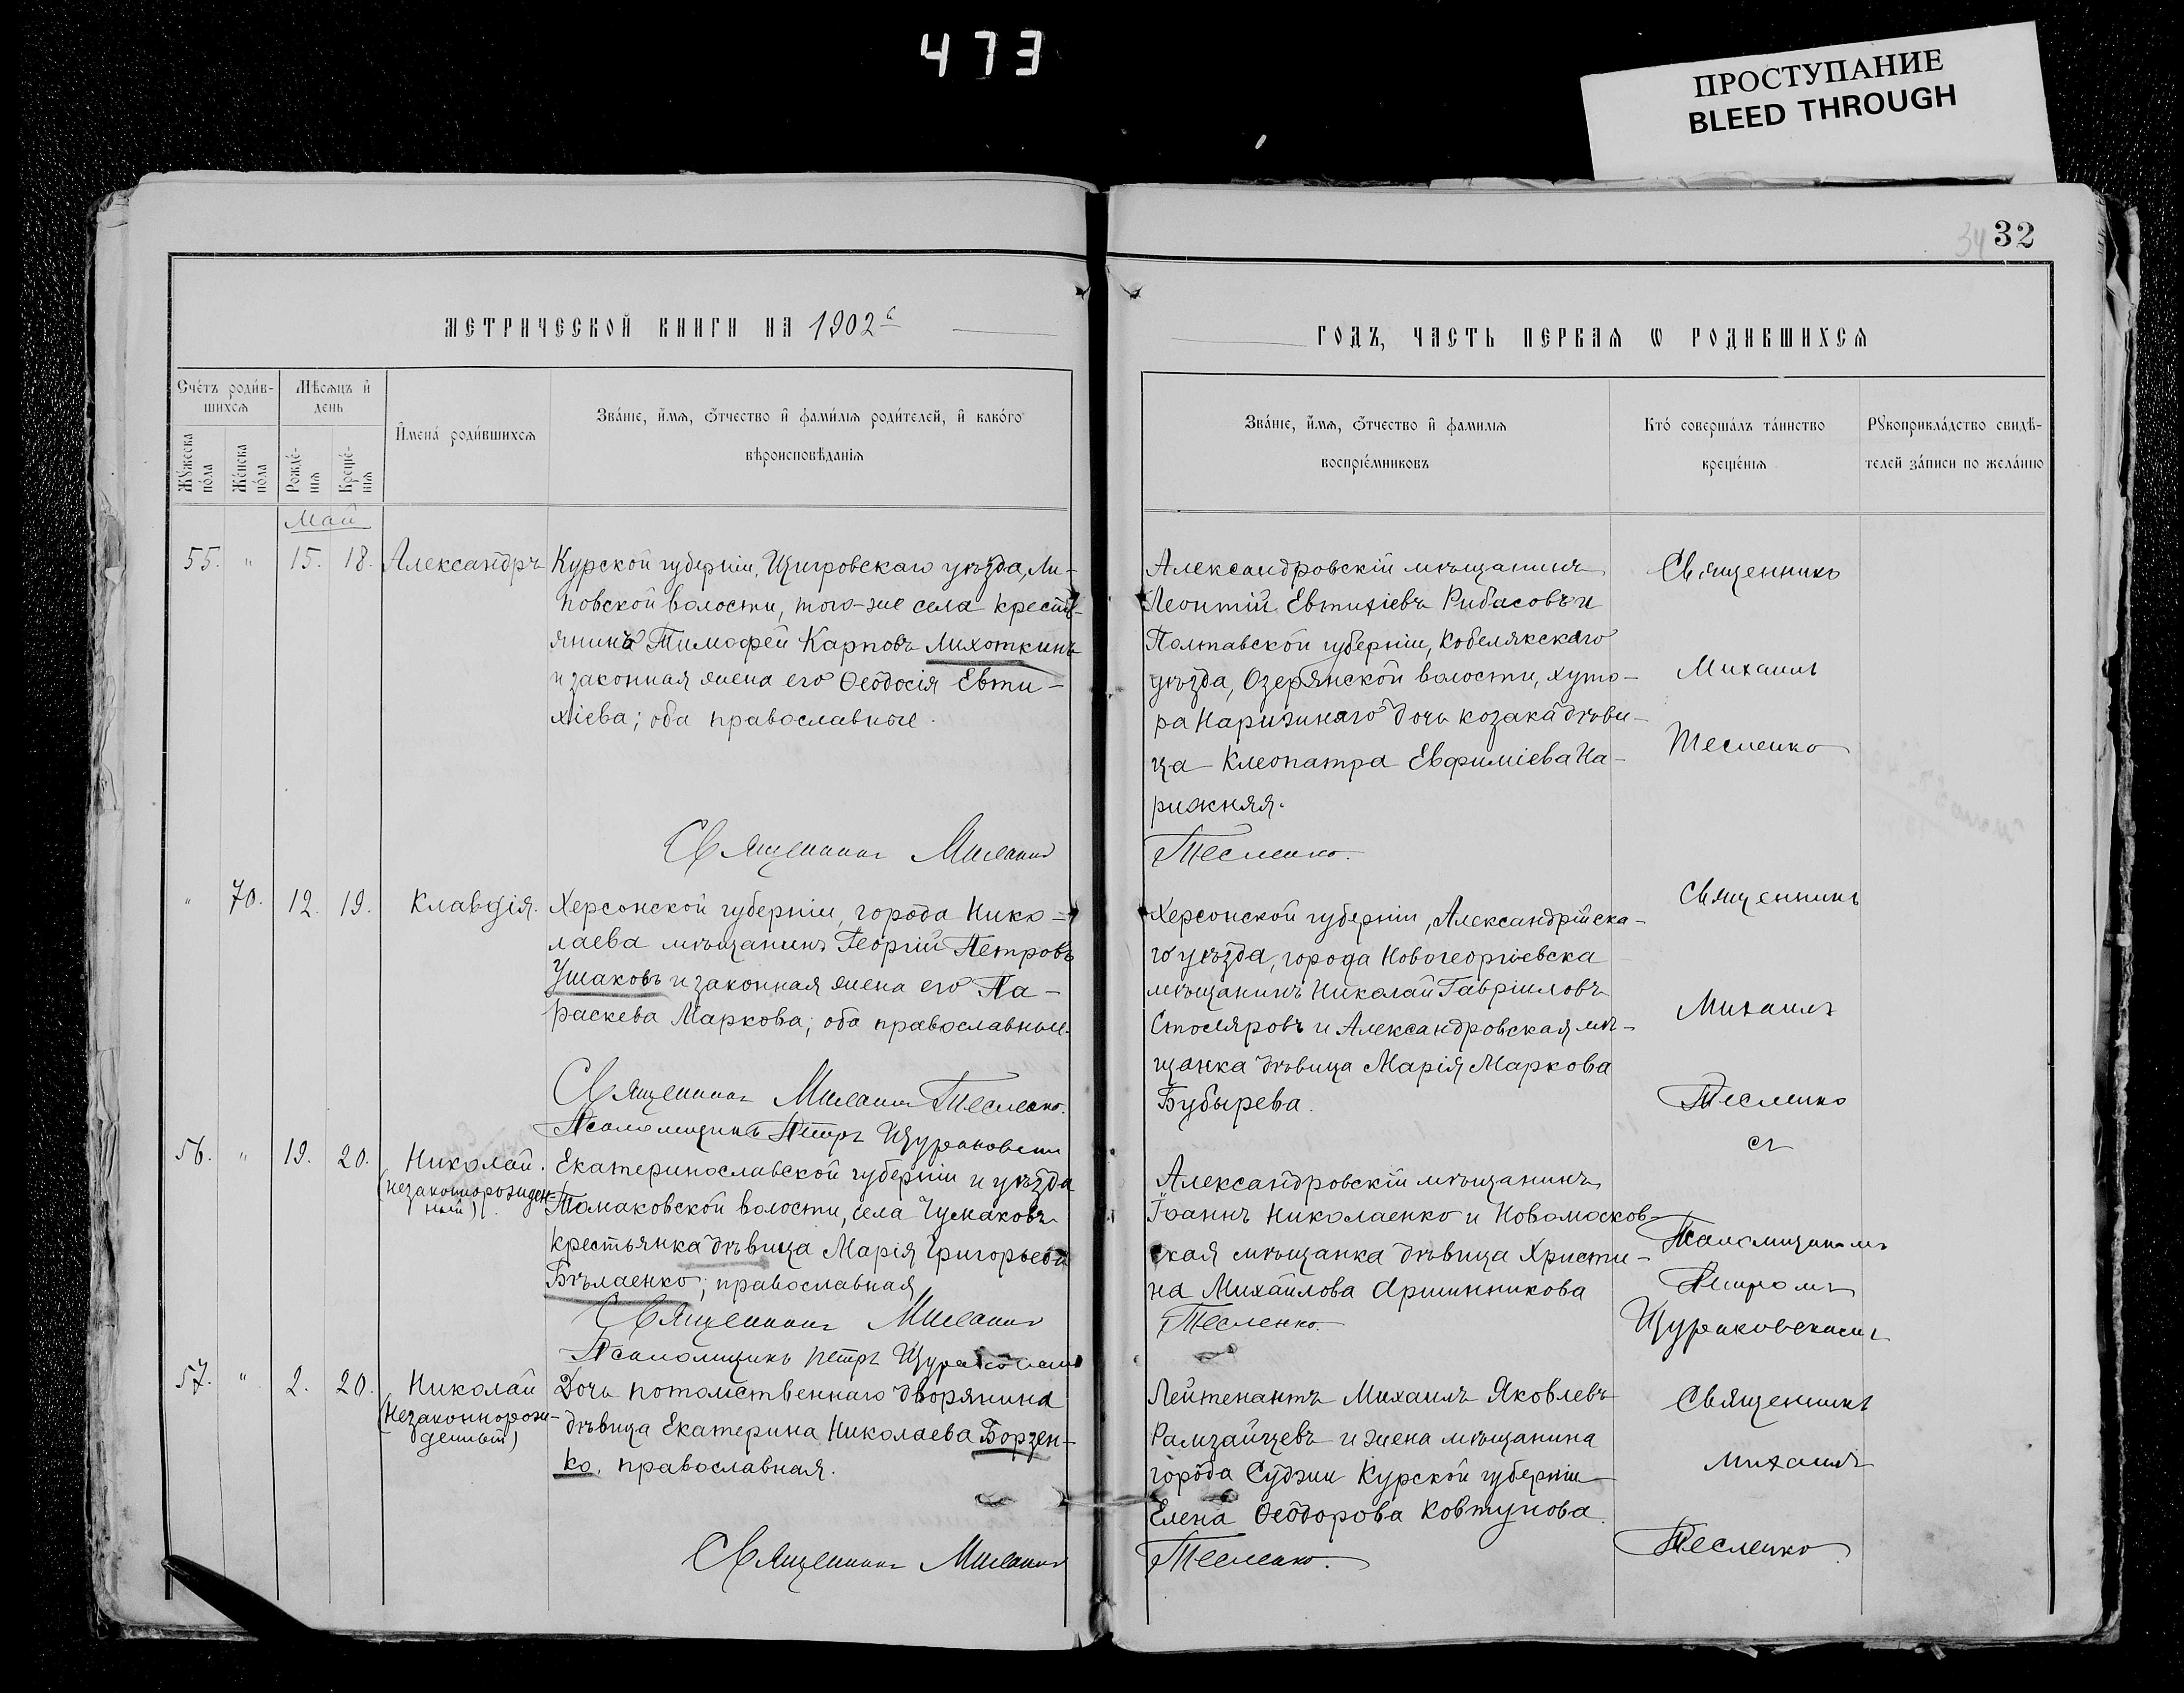 473
ПРОСТУПАНИЕ
BLEED THROUGH
34 32
МЕТРИЧЕСКОЙ КНИГИ НА 1902й
ГОДЪ, ЧАСТЬ ПЕРВАЯ Ѡ РОДИВШИХСЯ
Счетъ родившихся
Мѣсяцъ и день
Мужеска пола
Женска пола
Рожденія
Крещенія
Имена родившихся
Званіе, имя, отчество и фамилія родителей, и какого
вѣроисповѣданія
Званіе, имя, отчество и фамилія
воспріемниковъ
Кто совершалъ таинство
крещенія
Рукоприкладство свидѣ-
телей записи по желанію
Май
55. " 15. 18. Александръ
Курской губерніи, Щигровскаго уѣзда, Ли-
повской волости, того-же села кресть-
янинъ Тимофей Карповъ Лихоткинъ
и законная жена его Ѳеодосія Евти-
хіева; оба православные.
Священникъ Михаилъ Тесленко.
Александровскій мѣщанинъ
Леонтій Евтихіевъ Рибасовъ и
Полтавской губерніи, Кобелякскаго
уѣзда, Озерянской волости, хуто-
ра Нарижнаго дочь козака дѣви-
ца Клеопатра Евфиміева На-
рижняя.
Священникъ
Михаилъ
Тесленко
" 70. 12. 19. Клавдія.
Херсонской губерніи, города Нико-
лаева мѣщанинъ Георгій Петровъ
Ушаковъ и законная жена его Па-
раскева Маркова; оба православные.
Священникъ Михаилъ Тесленко.
Псаломщикъ Петръ Щураковскій
Херсонской губерніи, Александрійска-
го уѣзда, города Новогеоргіевска
мѣщанинъ Николай Гавріиловъ
Столяровъ и Александровская мѣ-
щанка дѣвица Марія Маркова
Бубырева.
Священникъ
Михаилъ
Тесленко
съ
Псаломщикомъ
Петромъ
Щураковскимъ
56. " 19. 20. Николай.
(незаконнорожден-
ный).
Екатеринославской губерніи и уѣзда
Томаковской волости, села Чумаковъ
крестьянка дѣвица Марія Григорьева
Бѣлаенко; православная
Священникъ Михаилъ Тесленко.
Псаломщикъ Петръ Щураковскій
Александровскій мѣщанинъ
Іоаннъ Николаенко и Новомосков-
ская мѣщанка дѣвица Христи-
на Михайлова Аршинникова
57. " 2. 20. Николай
(Незаконнорож-
денный)
Дочь потомственнаго дворянина
дѣвица Екатерина Николаева Борзен-
ко, православная.
Священникъ Михаилъ Тесленко.
Лейтенантъ Михаилъ Яковлевъ
Рамзайцевъ и жена мѣщанина
города Суджи Курской губерніи
Елена Ѳеодорова Ковтунова.
Священникъ
Михаилъ
Тесленко